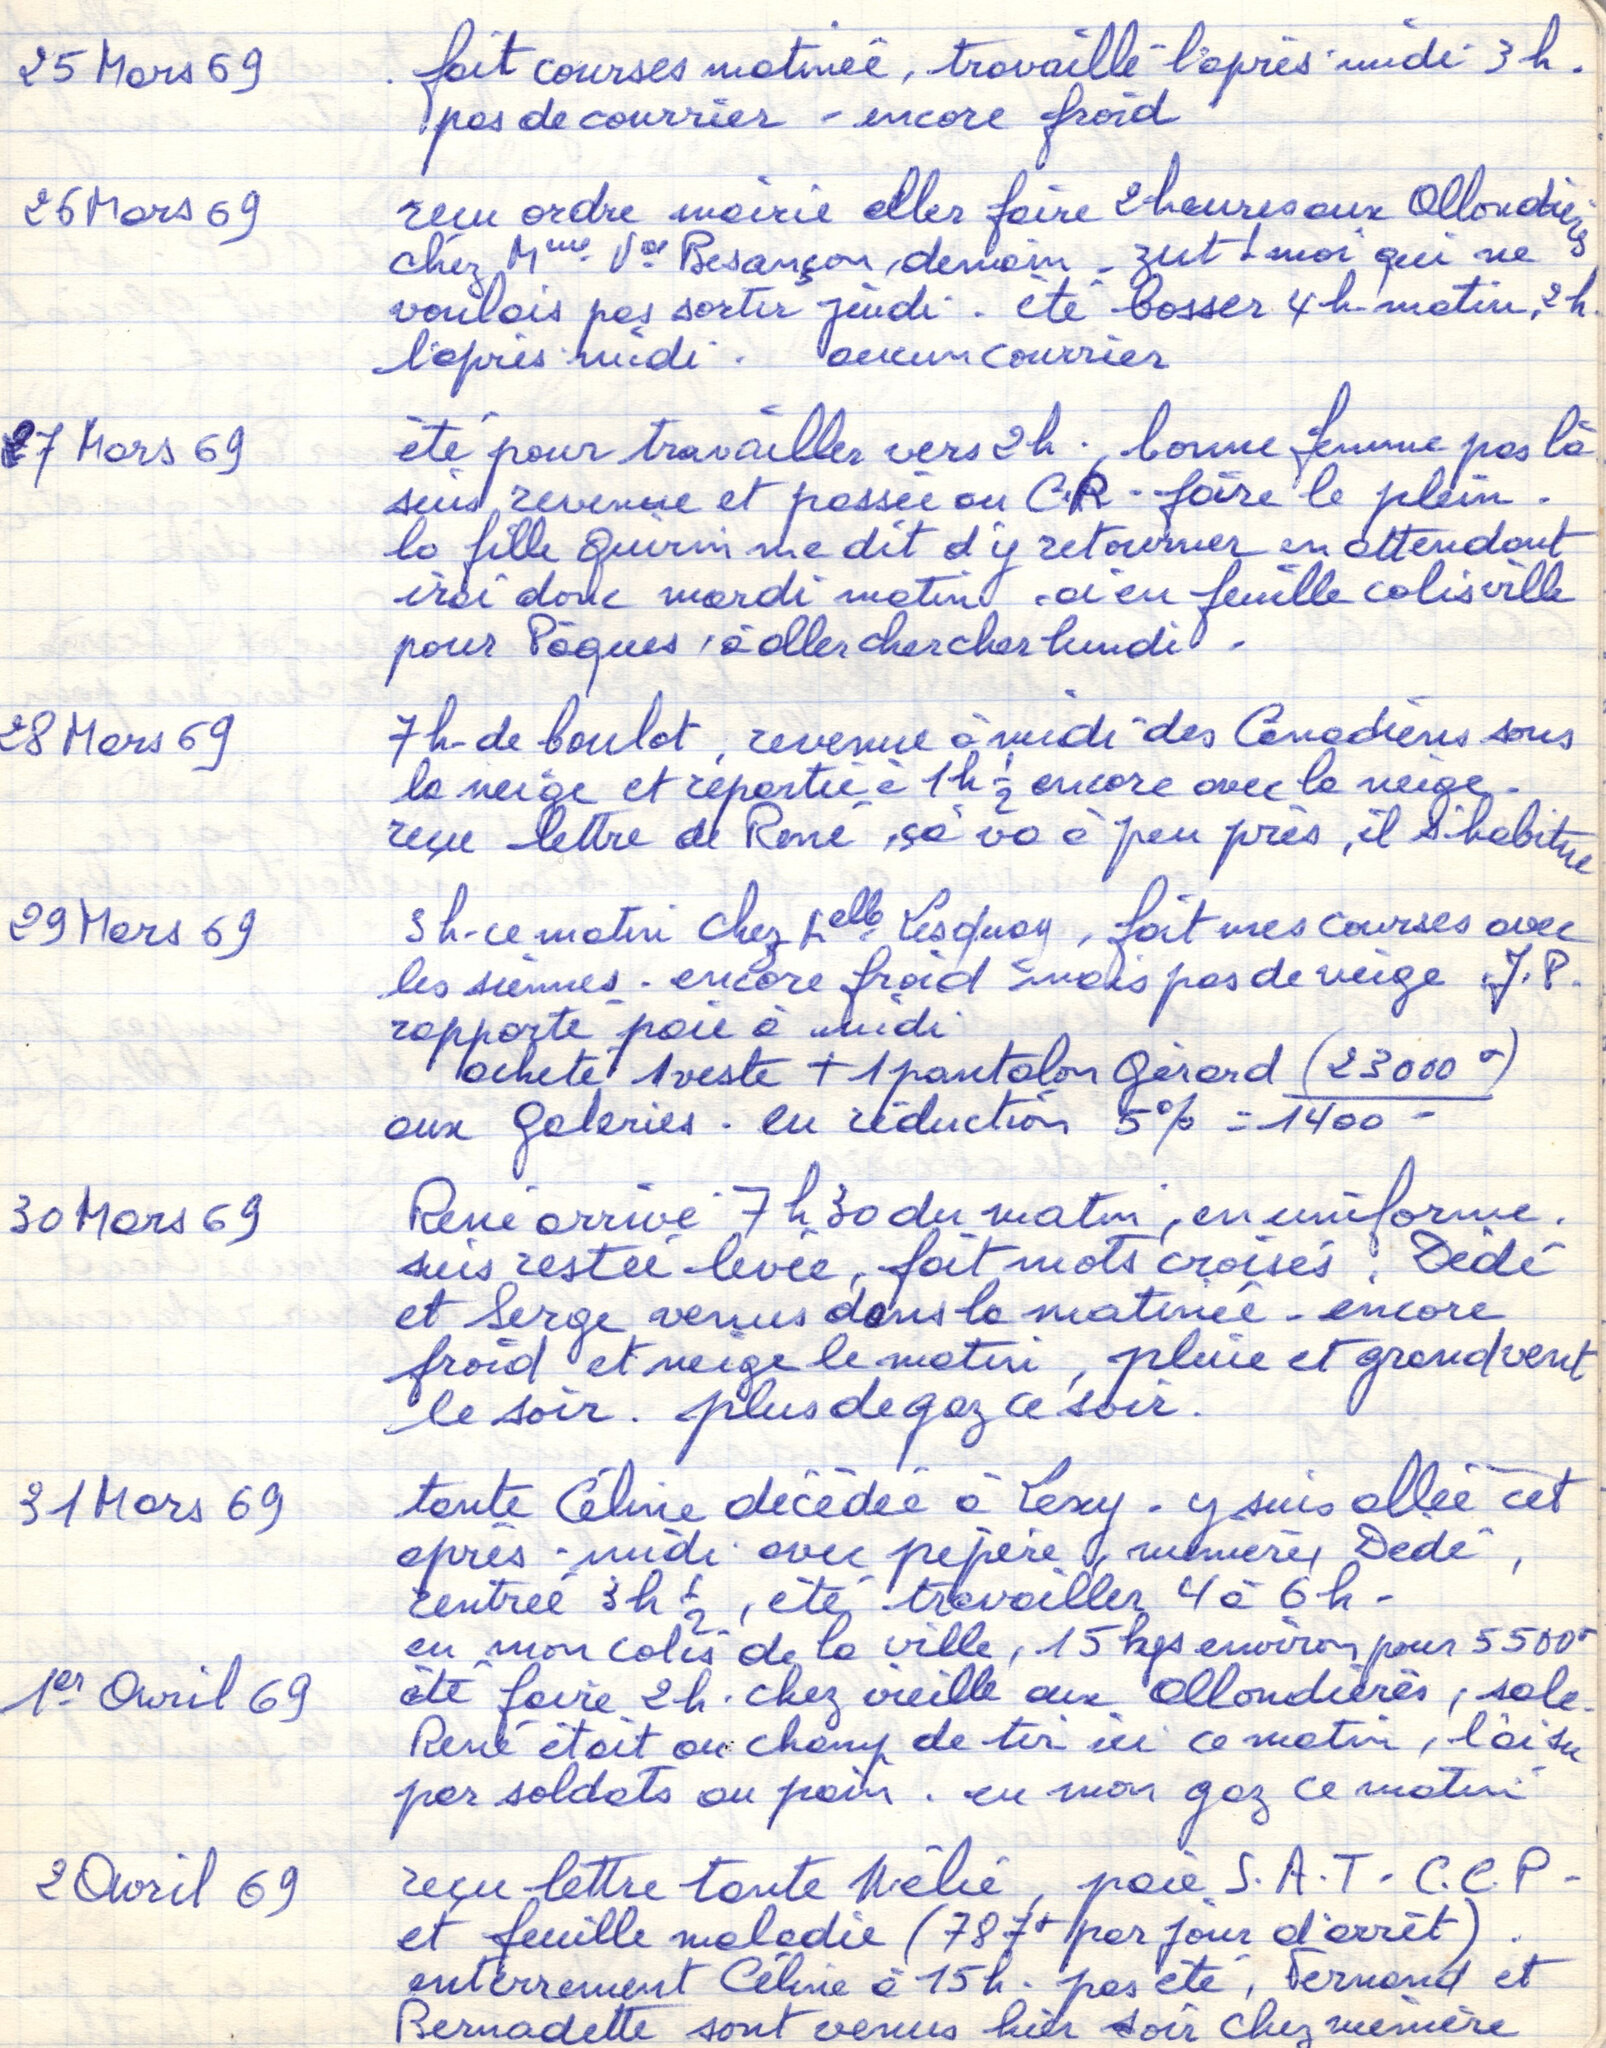 25 Mars 69 . fait courses matinée, travaillé l'après-midi 3 h.
pas de courrier - encore froid
26 Mars 69 reçu ordre mairie aller faire 2 heures aux Ollondières
chez Mme Vve Besançon, demain - zut ! moi qui ne
voulais pas sortir jeudi. été bosser 4 h. matin, 2 h.
l'après-midi. aucun courrier
27 Mars 69 été pour travailler vers 2 h., bonne femme pas là
suis revenue et passée au C.R. - faire le plein.
la fille Quirin me dit d'y retourner en attendant
irai donc mardi matin. ai eu feuille colis ville
pour Pâques, à aller chercher lundi.
28 Mars 69 7 h. de boulot, revenue à midi des Canadiens sous
la neige et repartie à 1 h 1/2 encore avec la neige.
reçu lettre de René, çà va à peu près, il s'habitue
29 Mars 69 3 h. ce matin chez Lesquoy, fait mes courses avec
les siennes. encore froid mais pas de neige. J.P.
rapporté paie à midi
acheté 1 veste + 1 pantalon Gérard (23000 )
aux Galeries. eu réduction 5% = 1400 -
30 Mars 69 René arrivé 7 h 30 du matin, en uniforme.
suis restée levée, fait mots croisés. Dédé
et Serge venus dans la matinée - encore
froid et neige le matin, pluie et grand vent
le soir. plus de gaz ce soir.
31 Mars 69 tante Céline décédée à Lexy - y suis allée cet
après-midi avec pépère, mémère, Dédé,
rentrée 3 h 1/2, été travailler 4 à 6 h -
eu mon colis de la ville, 15 kgs environ pour 5500
1er Avril 69 été faire 2 h. chez vieille aux Ollondières, sale.
René était au champ de tir ici ce matin, l'ai su
par soldats au pain. eu mon gaz ce matin
2 Avril 69 reçu lettre tante Mélie, paie S.A.T. - C.C.P -
et feuille maladie (787 par jour d'arrêt).
enterrement Céline à 15 h. pas été, Fernand et
Bernadette sont venus hier soir chez mémère